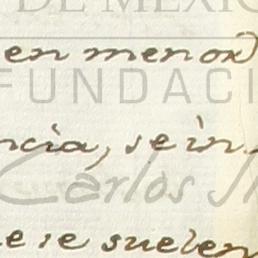 DE MEXIC
en menor
FUNDACI
ncia, se in
Carlos Sl
e se suelen